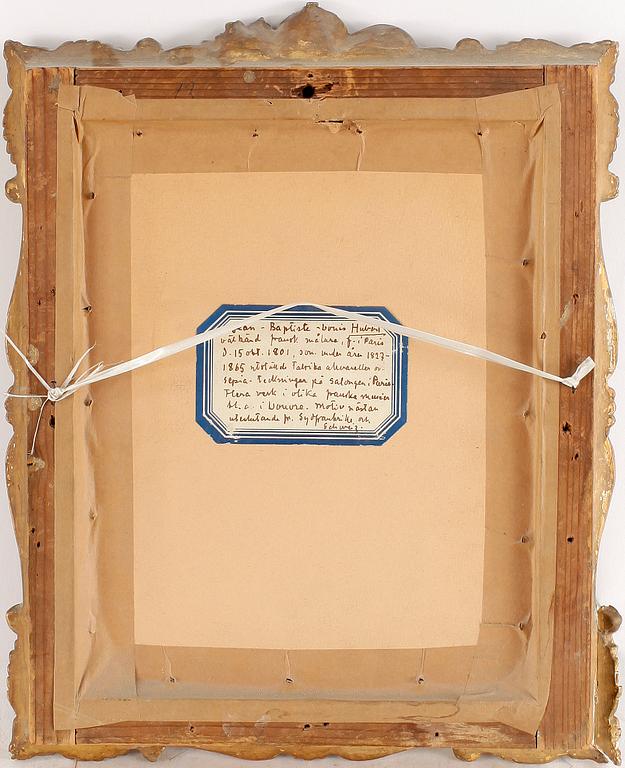 Jean - Baptiste - Louis Hubert
välkänd fransk målare, f. i Paris
D. 15 okt. 1801, som under åren 1827-
1865 utställde talrika akvareller o.
sepia-teckningar på salongen i Paris.
Flera verk i olika franska museer
bl. a. i Louvre. Motiv nästan
uteslutande fr. Sydfrankrike och
Schweiz.